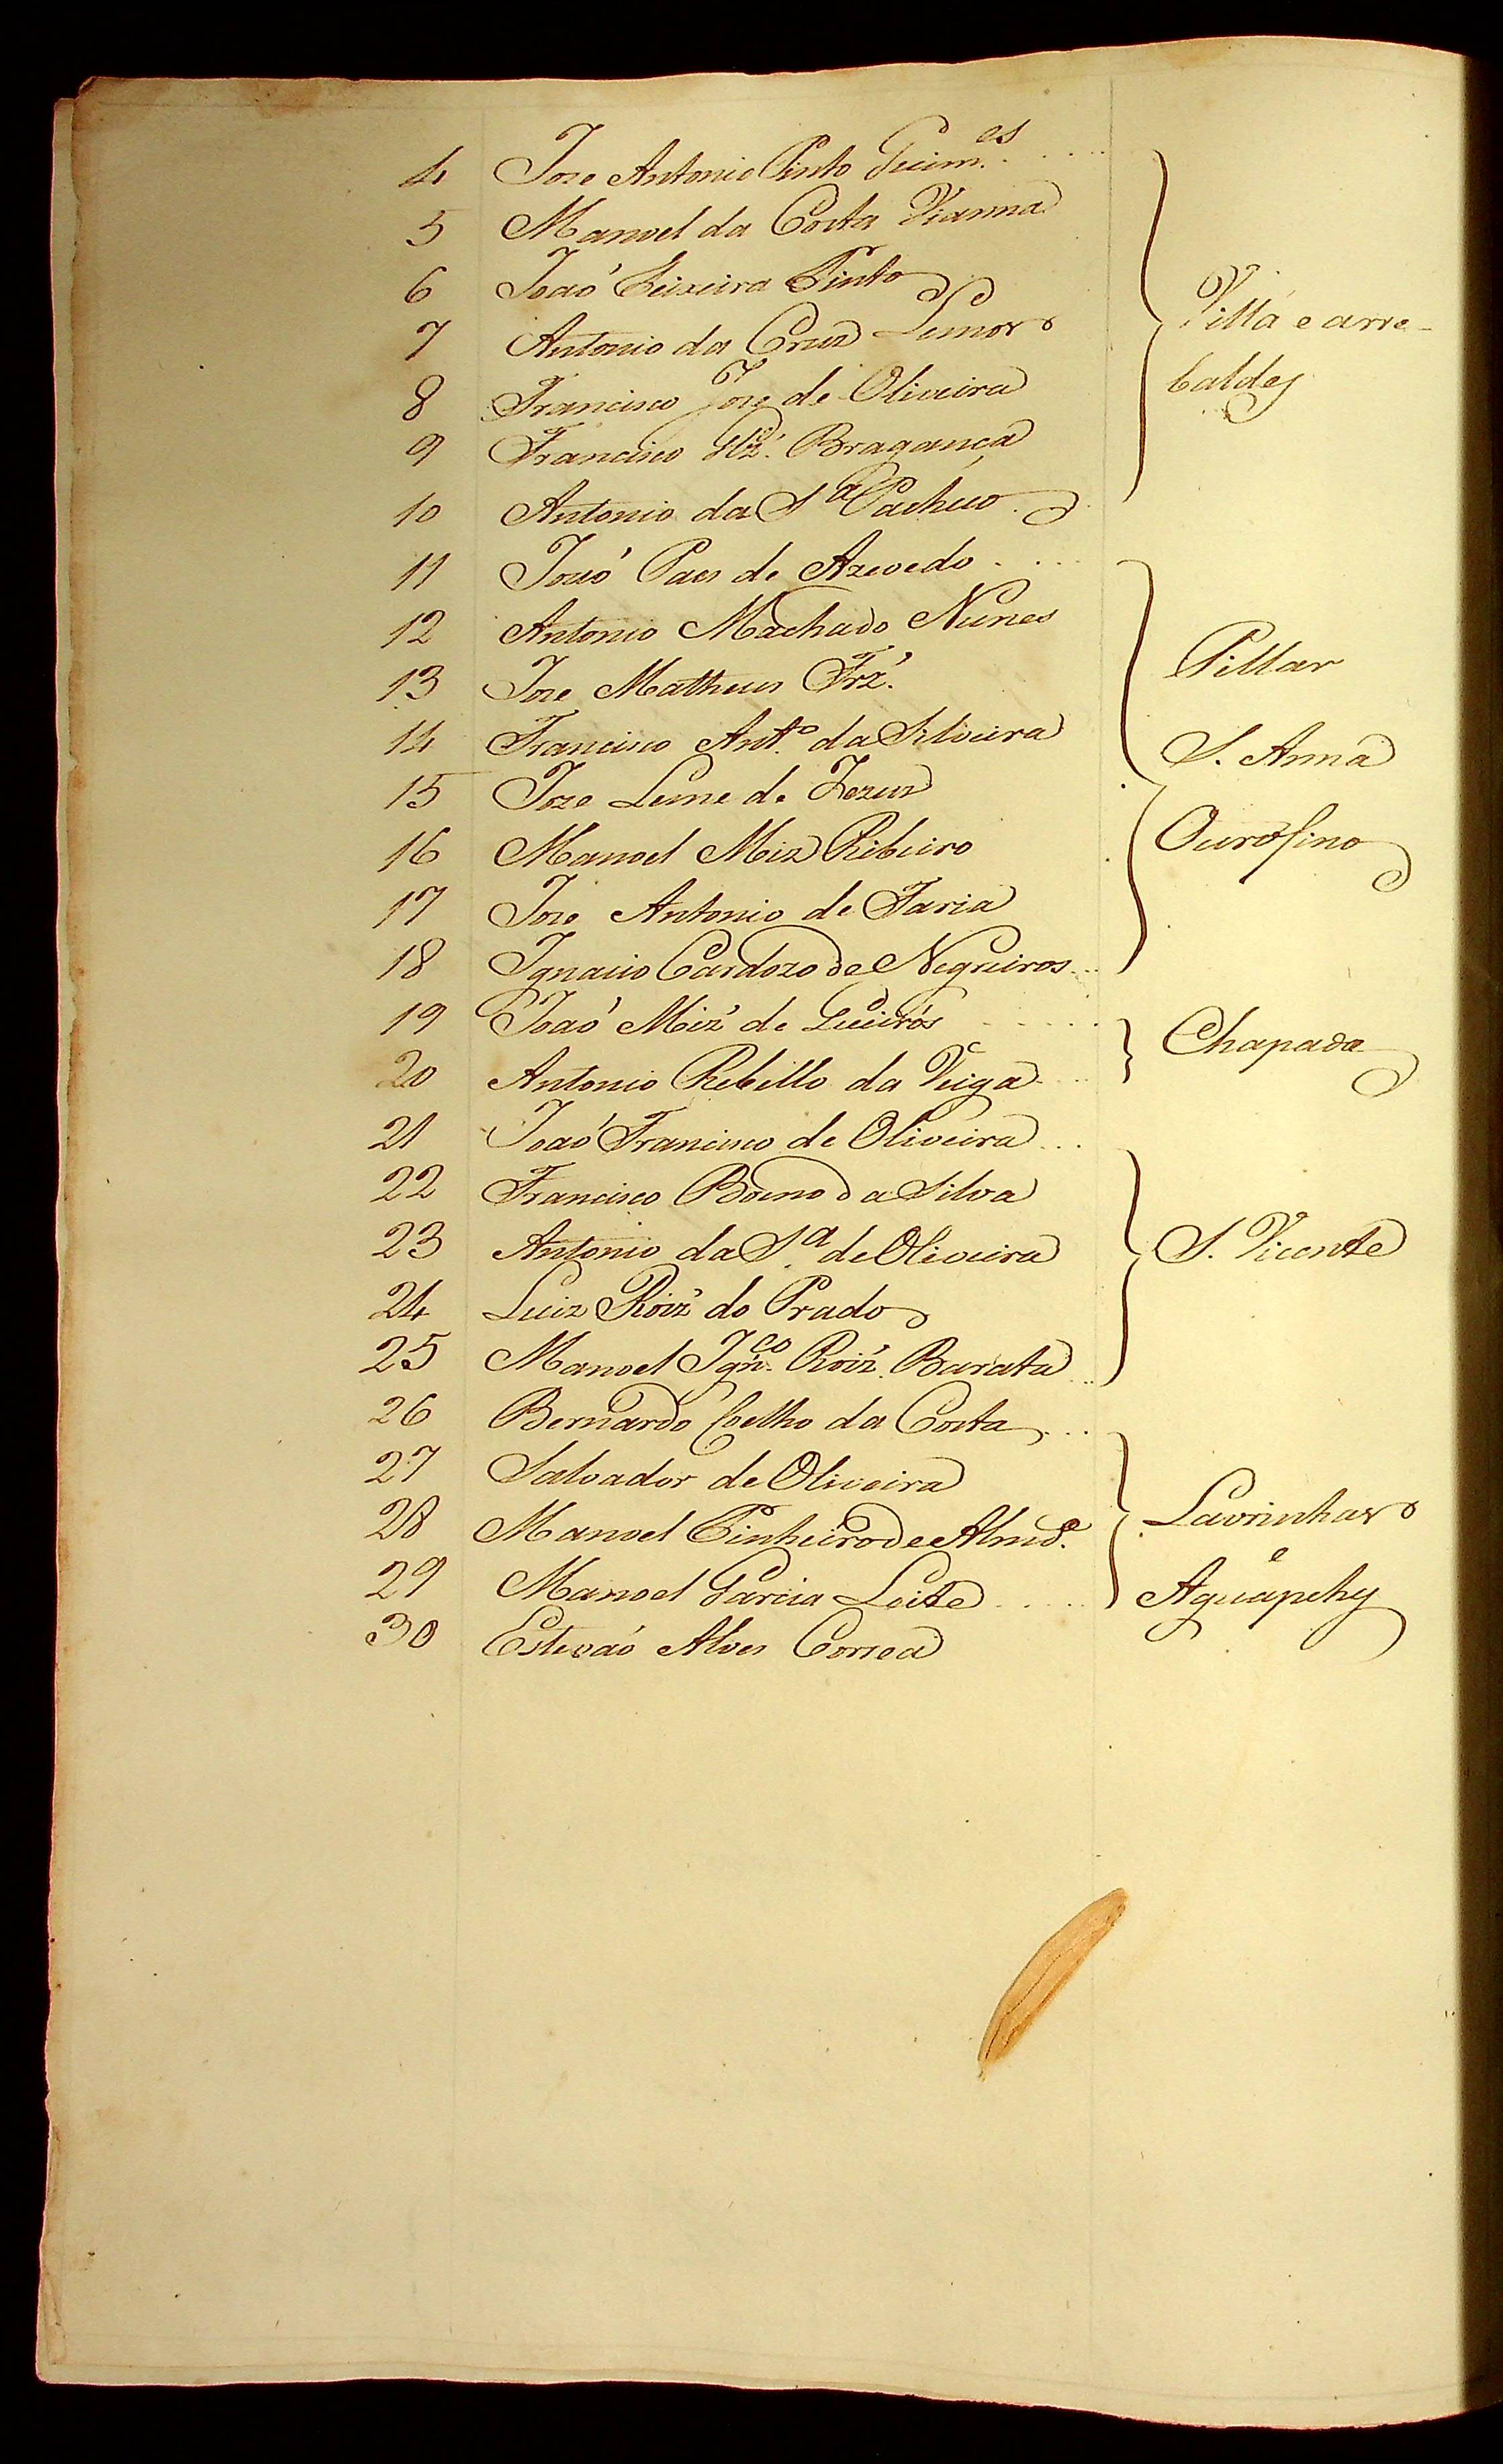 4 Joze Antonio Pinto Guim.es
5 Manoel da Costa Vianna
6 Joaó Teixeira Pinto
7 Antonio da Cruz Lemos
Villa e arre-
8 Francisco Joze de Oliveira
baldes
9 Francisco Glz.' Bragança
10 Antonio da S.a Pacheco
11 Paes de Azevedo
12 Antonio Machado Nunes
13 Joze Matheus Frz.'
Pillar
14 Francisco Ant.o da Silveira
S. Anna
15 Joze Leme de Jezus
16 Manoel Miz Ribeiro
Ourofino
17 Joze Antonio de Faria
18 Ignacio Cardozo de Negreiros
19 Joaó Miz' de Queirós
Chapada
20 Antonio Rebello da Veiga
21 Joaó Francisco de Oliveira
22 Francisco Boeno da Silva
23 Antonio da S.a de Oliveira
S. Vicente
24 Luiz Roiz' do Prado
25 Manoel Ign.co Roiz' Barata
26 Bernardo Coelho da Costa
27 Salvador de Oliveira
28 Manoel Pinheiro de Almd.a
Lavrinhas
29 Manoel Garcia Leite
e
Aguapehy
30 Estevaó Alves Correa